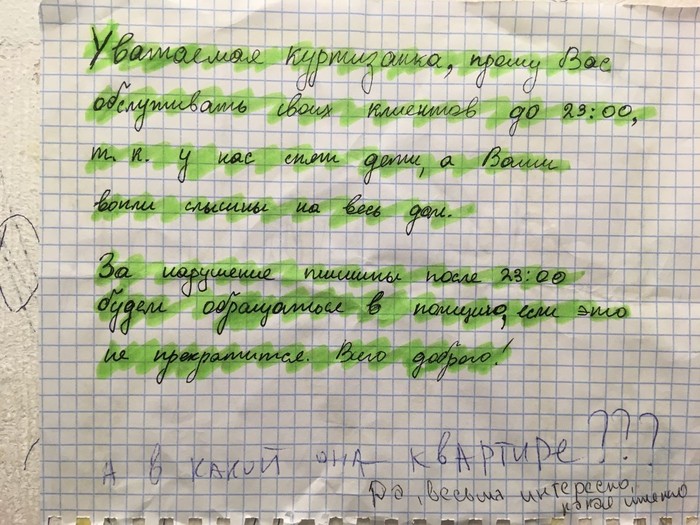 Уважаемая куртизанка, прошу Вас
обслуживать своих клиентов до 23:00,
т. к. у нас спят дети, а Ваши
вопли слышны на весь дом.
За нарушение тишины после 23:00
будем обращаться в полицию, если это
не прекратится. Всего доброго!
А в какой она квартире???
Да, весьма интересно,
какая именно